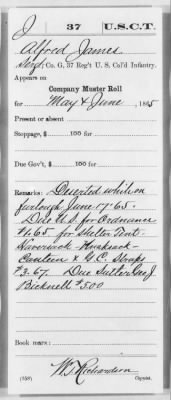 J 37 U.S.C.T.
Alfred James
Serg', Co. G, 37 Reg't U. S. Col'd Infantry.
Appears on
Company Muster Roll
for May & June, 1865
Present or absent
Stoppage, $ 100 for
Due Gov't, $ 100 for
Remarks: Deserted while on
furlough June 17-65.
Due U.S. for Ordnance
$1.65 for Shelter Tent-
Haversack-Knapsack-
Canteen & G.C. Straps
$3.67. Due Sutler Geo J
Bicknell $5.00
Book mark:
(358)
W.T. Richardson
Copyist.